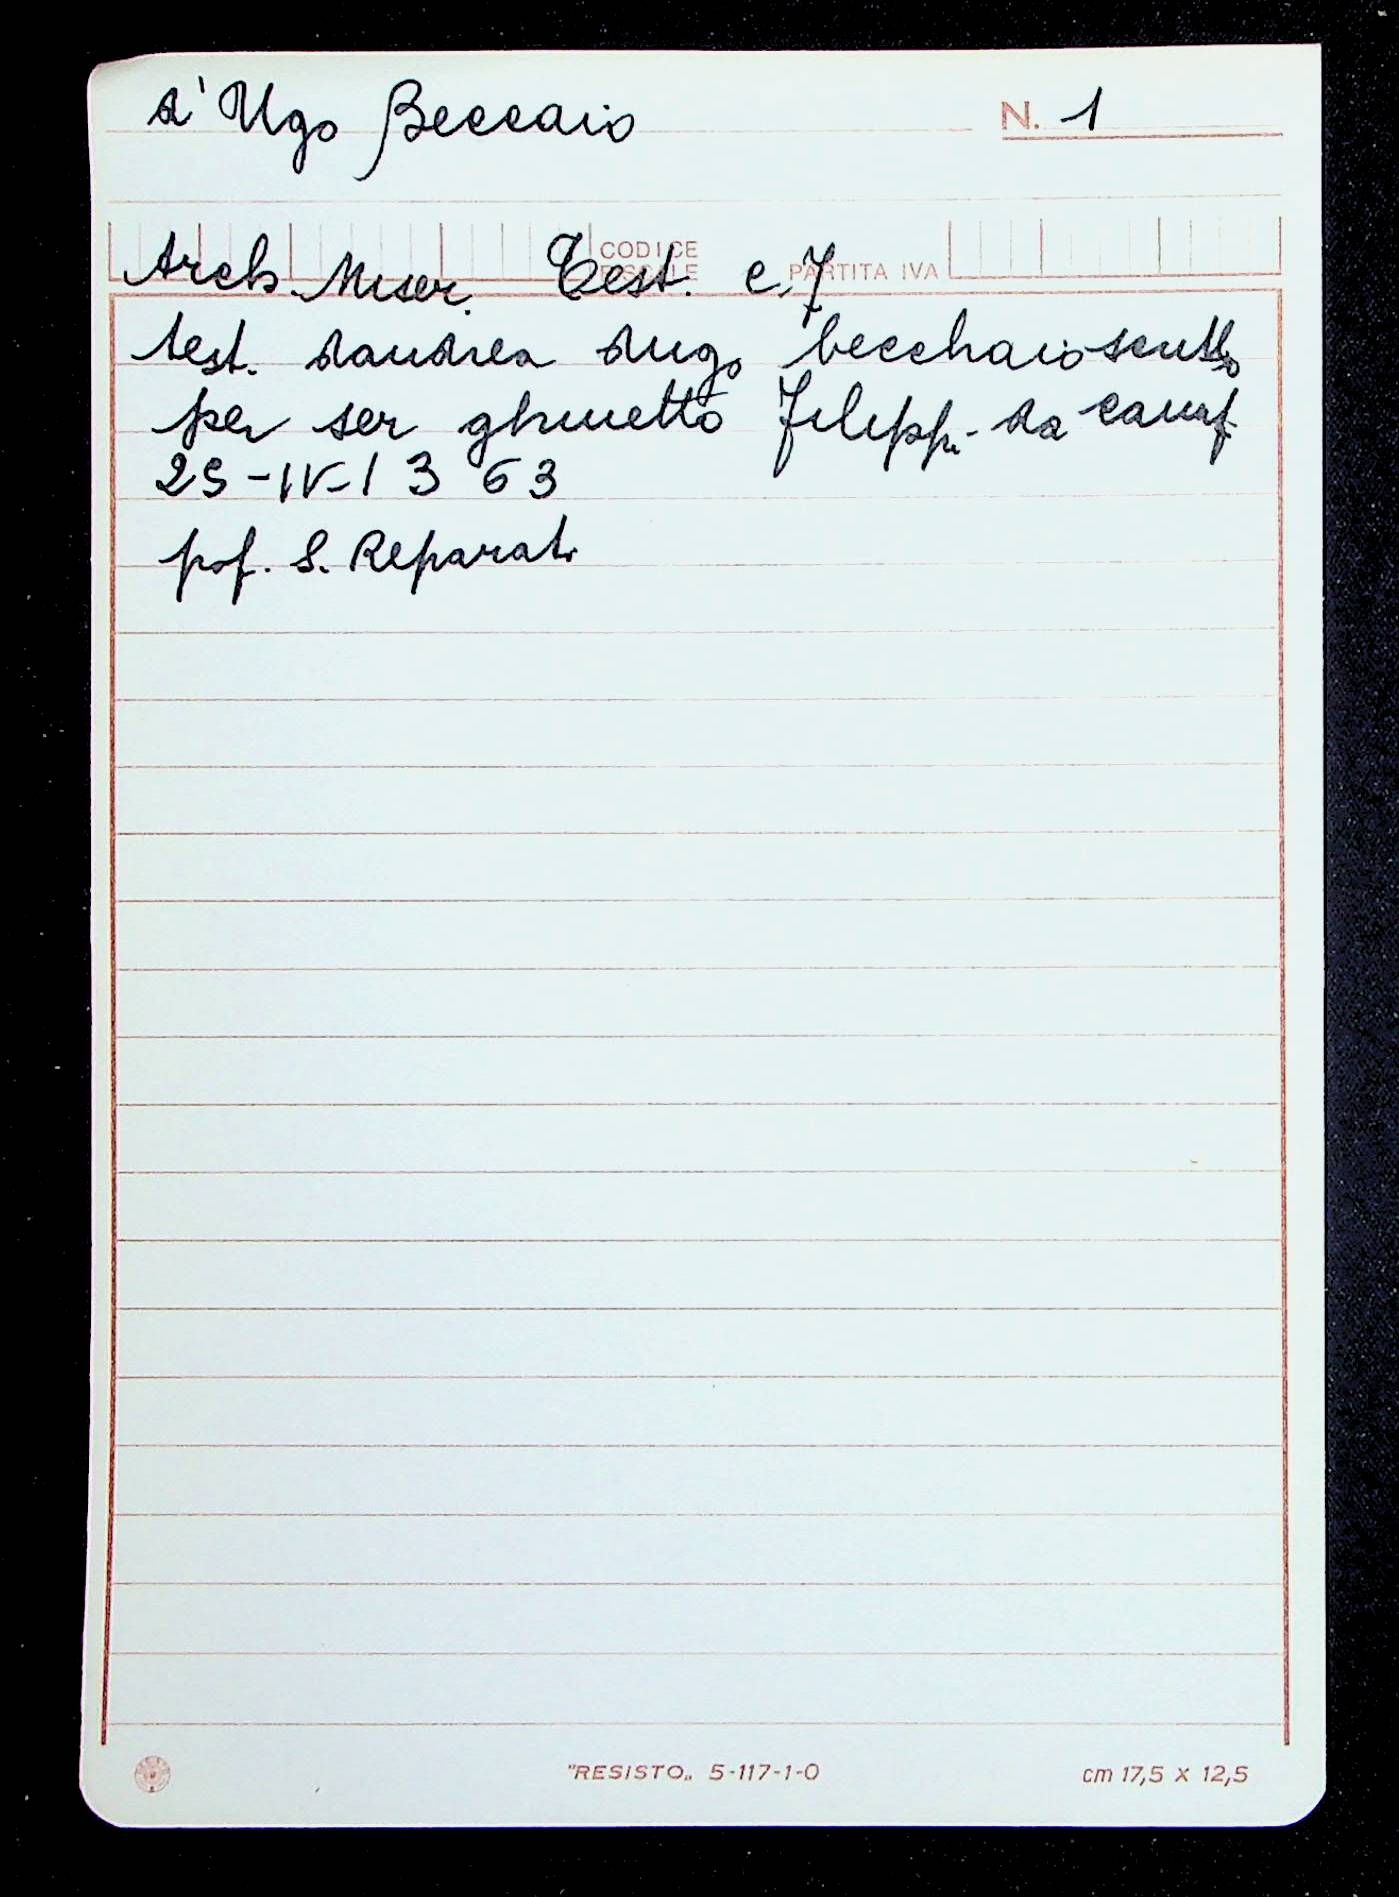 d'Ugo Beccaio N. 1
CODICE
FISCALE PARTITA IVA
Arch. Miser. Test. c. 7
test. dandrea dugo becchaio scritto
per ser ghinetto filippi da
25-IV-1363
pop. S. Reparata
"RESISTO„ 5-117-1-0 cm 17,5 x 12,5